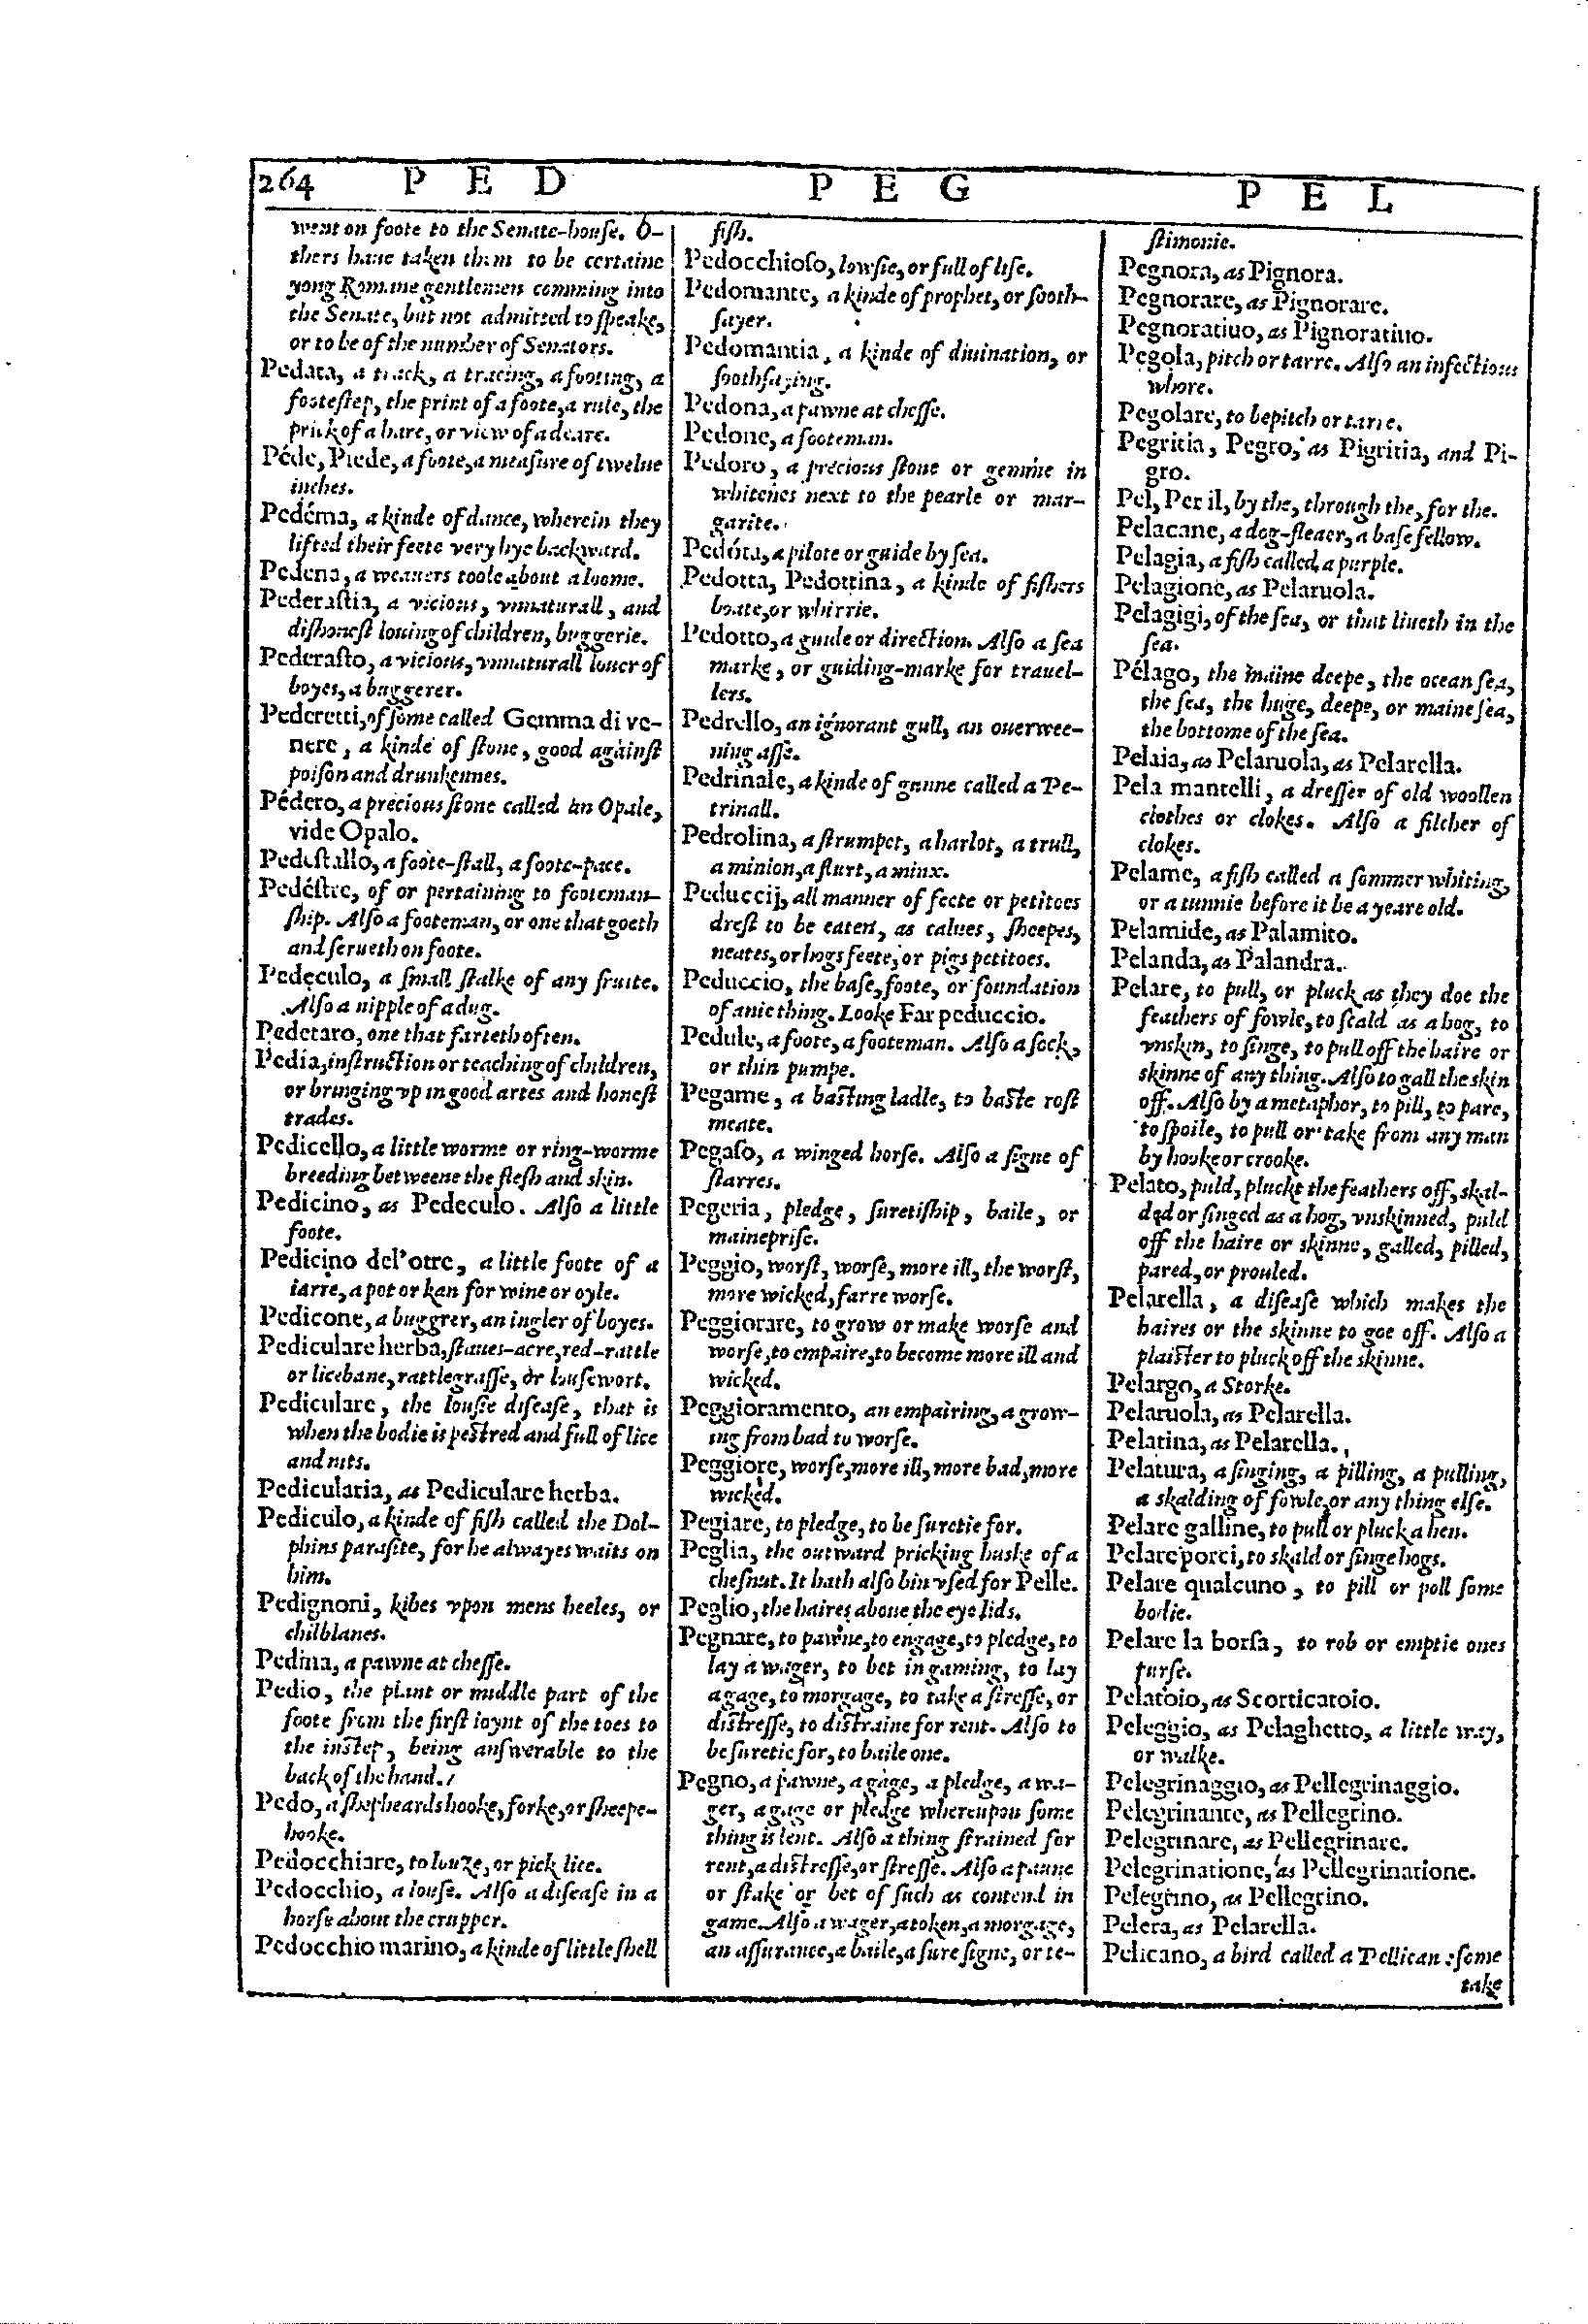 264 P E D P E G P E L
went on foote to the Senate-house. O-
thers haue taken them to be certaine
yong Romane gentlemen comming into
the Senate, but not admitted to speake,
or to be of the number of Senators.
Pedata, a track, a tracing, a footing, a
footestep, the print of a foote, a rule, the
prick of a hare, or view of a deare.
Péde, Piede, a foote, a measure of twelue
inches.
Pedéma, a kinde of dance, wherein they
lifted their feete very hye backward.
Pedena, a weauers toole about a loome.
Pederastia, a vicious, vnnaturall, and
dishonest louing of children, buggerie.
Pederasto, a vicious, vnnaturall louer of
boyes, a buggerer.
Pederetti, of some called Gemma di ve-
nere, a kinde of stone, good against
poison and drunkennes.
Pédero, a precious stone called an Opale,
vide Opalo.
Pedestallo, a foote-stall, a foote-pace.
Pedéstre, of or pertaining to footeman-
ship. Also a footeman, or one that goeth
and serueth on foote.
Pedeculo, a small stalke of any fruite.
Also a nipple of a dug.
Pedetaro, one that farteth often.
Pedia, instruction or teaching of children,
or bringing vp in good artes and honest
trades.
Pedicello, a little worme or ring-worme
breeding betweene the flesh and skin.
Pedicino, as Pedeculo. Also a little
foote.
Pedicino del'otre, a little foote of a
iarre, a pot or kan for wine or oyle.
Pedicone, a buggrer, an ingler of boyes.
Pediculare herba, staues-acre, red-rattle
or licebane, rattlegrasse, or lousewort.
Pediculare, the lousie disease, that is
when the bodie is pestred and full of lice
and nits.
Pedicularia, as Pediculare herba.
Pediculo, a kinde of fish called the Dol-
phins parasite, for he alwayes waits on
him.
Pedignoni, kibes vpon mens heeles, or
chilblanes.
Pedina, a pawne at chesse.
Pedio, the plant or middle part of the
foote from the first ioynt of the toes to
the instep, being answerable to the
back of the hand.
Pedo, a shepheards hooke, forke, or sheepe-
hooke.
Pedocchiare, to louze, or pick lice.
Pedocchio, a louse. Also a disease in a
horse about the crupper.
Pedocchio marino, a kinde of little shell
fish.
Pedocchioso, lowsie, or full of lise.
Pedomante, a kinde of prophet, or sooth-
sayer.
Pedomantia, a kinde of diuination, or
soothsaying.
Pedona, a pawne at chesse.
Pedone, a footeman.
Pedoro, a precious stone or gemme in
whitenes next to the pearle or mar-
garite.
Pedóta, a pilote or guide by sea.
Pedotta, Pedottina, a kinde of fishers
boate, or whirrie.
Pedotto, a guide or direction. Also a sea
marke, or guiding-marke for trauel-
lers.
Pedrello, an ignorant gull, an ouerwee-
ning asse.
Pedrinale, a kinde of gunne called a Pe-
trinall.
Pedrolina, a strumpet, a harlot, a trull,
a minion, a flurt, a minx.
Peduccij, all manner of feete or petitoes
drest to be eaten, as calues, sheepes,
neates, or hogs feete, or pigs petitoes.
Peduccio, the base, foote, or foundation
of anie thing. Looke Far peduccio.
Pedule, a foote, a footeman. Also a sock,
or thin pumpe.
Pegame, a basting ladle, to baste rost
meate.
Pegaso, a winged horse. Also a signe of
starres.
Pegeria, pledge, suretiship, baile, or
maineprise.
Peggio, worst, worse, more ill, the worst,
more wicked, farre worse.
Peggiorare, to grow or make worse and
worse, to empaire, to become more ill and
wicked.
Peggioramento, an empairing, a grow-
ing from bad to worse.
Peggiore, worse, more ill, more bad, more
wicked.
Pegiare, to pledge, to be suretie for.
Peglia, the outward pricking huske of a
chesnut. It hath also bin vsed for Pelle.
Peglio, the haires aboue the eye lids.
Pegnare, to pawne, to engage, to pledge, to
lay a wager, to bet in gaming, to lay
a gage, to morgage, to take a stresse, or
distresse, to distraine for rent. Also to
be suretie for, to baile one.
Pegno, a pawne, a gage, a pledge, a wa-
ger, a gage or pledge whereupon some
thing is lent. Also a thing strained for
rent, a distresse, or stresse. Also a pawne
or stake or bet of such as contend in
game. Also a wager, a token, a morgage,
an assurance, a baile, a sure signe, or te-
stimonie.
Pegnora, as Pignora.
Pegnorare, as Pignorare.
Pegnoratiuo, as Pignoratiuo.
Pegola, pitch or tarre. Also an infectious
whore.
Pegolare, to bepitch or tarre.
Pegritia, Pegro, as Pigritia, and Pi-
gro.
Pel, Per il, by the, through the, for the.
Pelacane, a dog-fleaer, a base fellow.
Pelagia, a fish called a purple.
Pelagione, as Pelaruola.
Pelagigi, of the sea, or that liueth in the
sea.
Pélago, the maine deepe, the ocean sea,
the sea, the huge, deepe, or maine sea,
the bottome of the sea.
Pelaia, as Pelaruola, as Pelarella.
Pela mantelli, a dresser of old woollen
clothes or clokes. Also a filcher of
clokes.
Pelame, a fish called a sommer whiting,
or a tunnie before it be a yeare old.
Pelamide, as Palamito.
Pelanda, as Palandra.
Pelare, to pull, or pluck as they doe the
feathers of fowle, to scald as a hog, to
vnskin, to singe, to pull off the haire or
skinne of any thing. Also to gall the skin
off. Also by a metaphor, to pill, to pare,
to spoile, to pull or take from any man
by hooke or crooke.
Pelato, puld, pluckt the feathers off, skal-
ded or singed as a hog, vnskinned, puld
off the haire or skinne, galled, pilled,
pared, or prouled.
Pelarella, a disease which makes the
haires or the skinne to goe off. Also a
plaister to pluck off the skinne.
Pelargo, a Storke.
Pelaruola, as Pelarella.
Pelatina, as Pelarella.
Pelatura, a singing, a pilling, a pulling,
a skalding of fowle, or any thing else.
Pelare galline, to pull or pluck a hen.
Pelare porci, to skald or singe hogs.
Pelare qualcuno, to pill or poll some
bodie.
Pelare la borsa, to rob or emptie ones
purse.
Pelatoio, as Scorticatoio.
Peleggio, as Pelaghetto, a little way,
or walke.
Pelegrinaggio, as Pellegrinaggio.
Pelegrinante, as Pellegrino.
Pelegrinare, as Pellegrinare.
Pelegrinatione, as Pellegrinatione.
Pelegrino, as Pellegrino.
Pelera, as Pelarella.
Pelicano, a bird called a Pellican: some
take